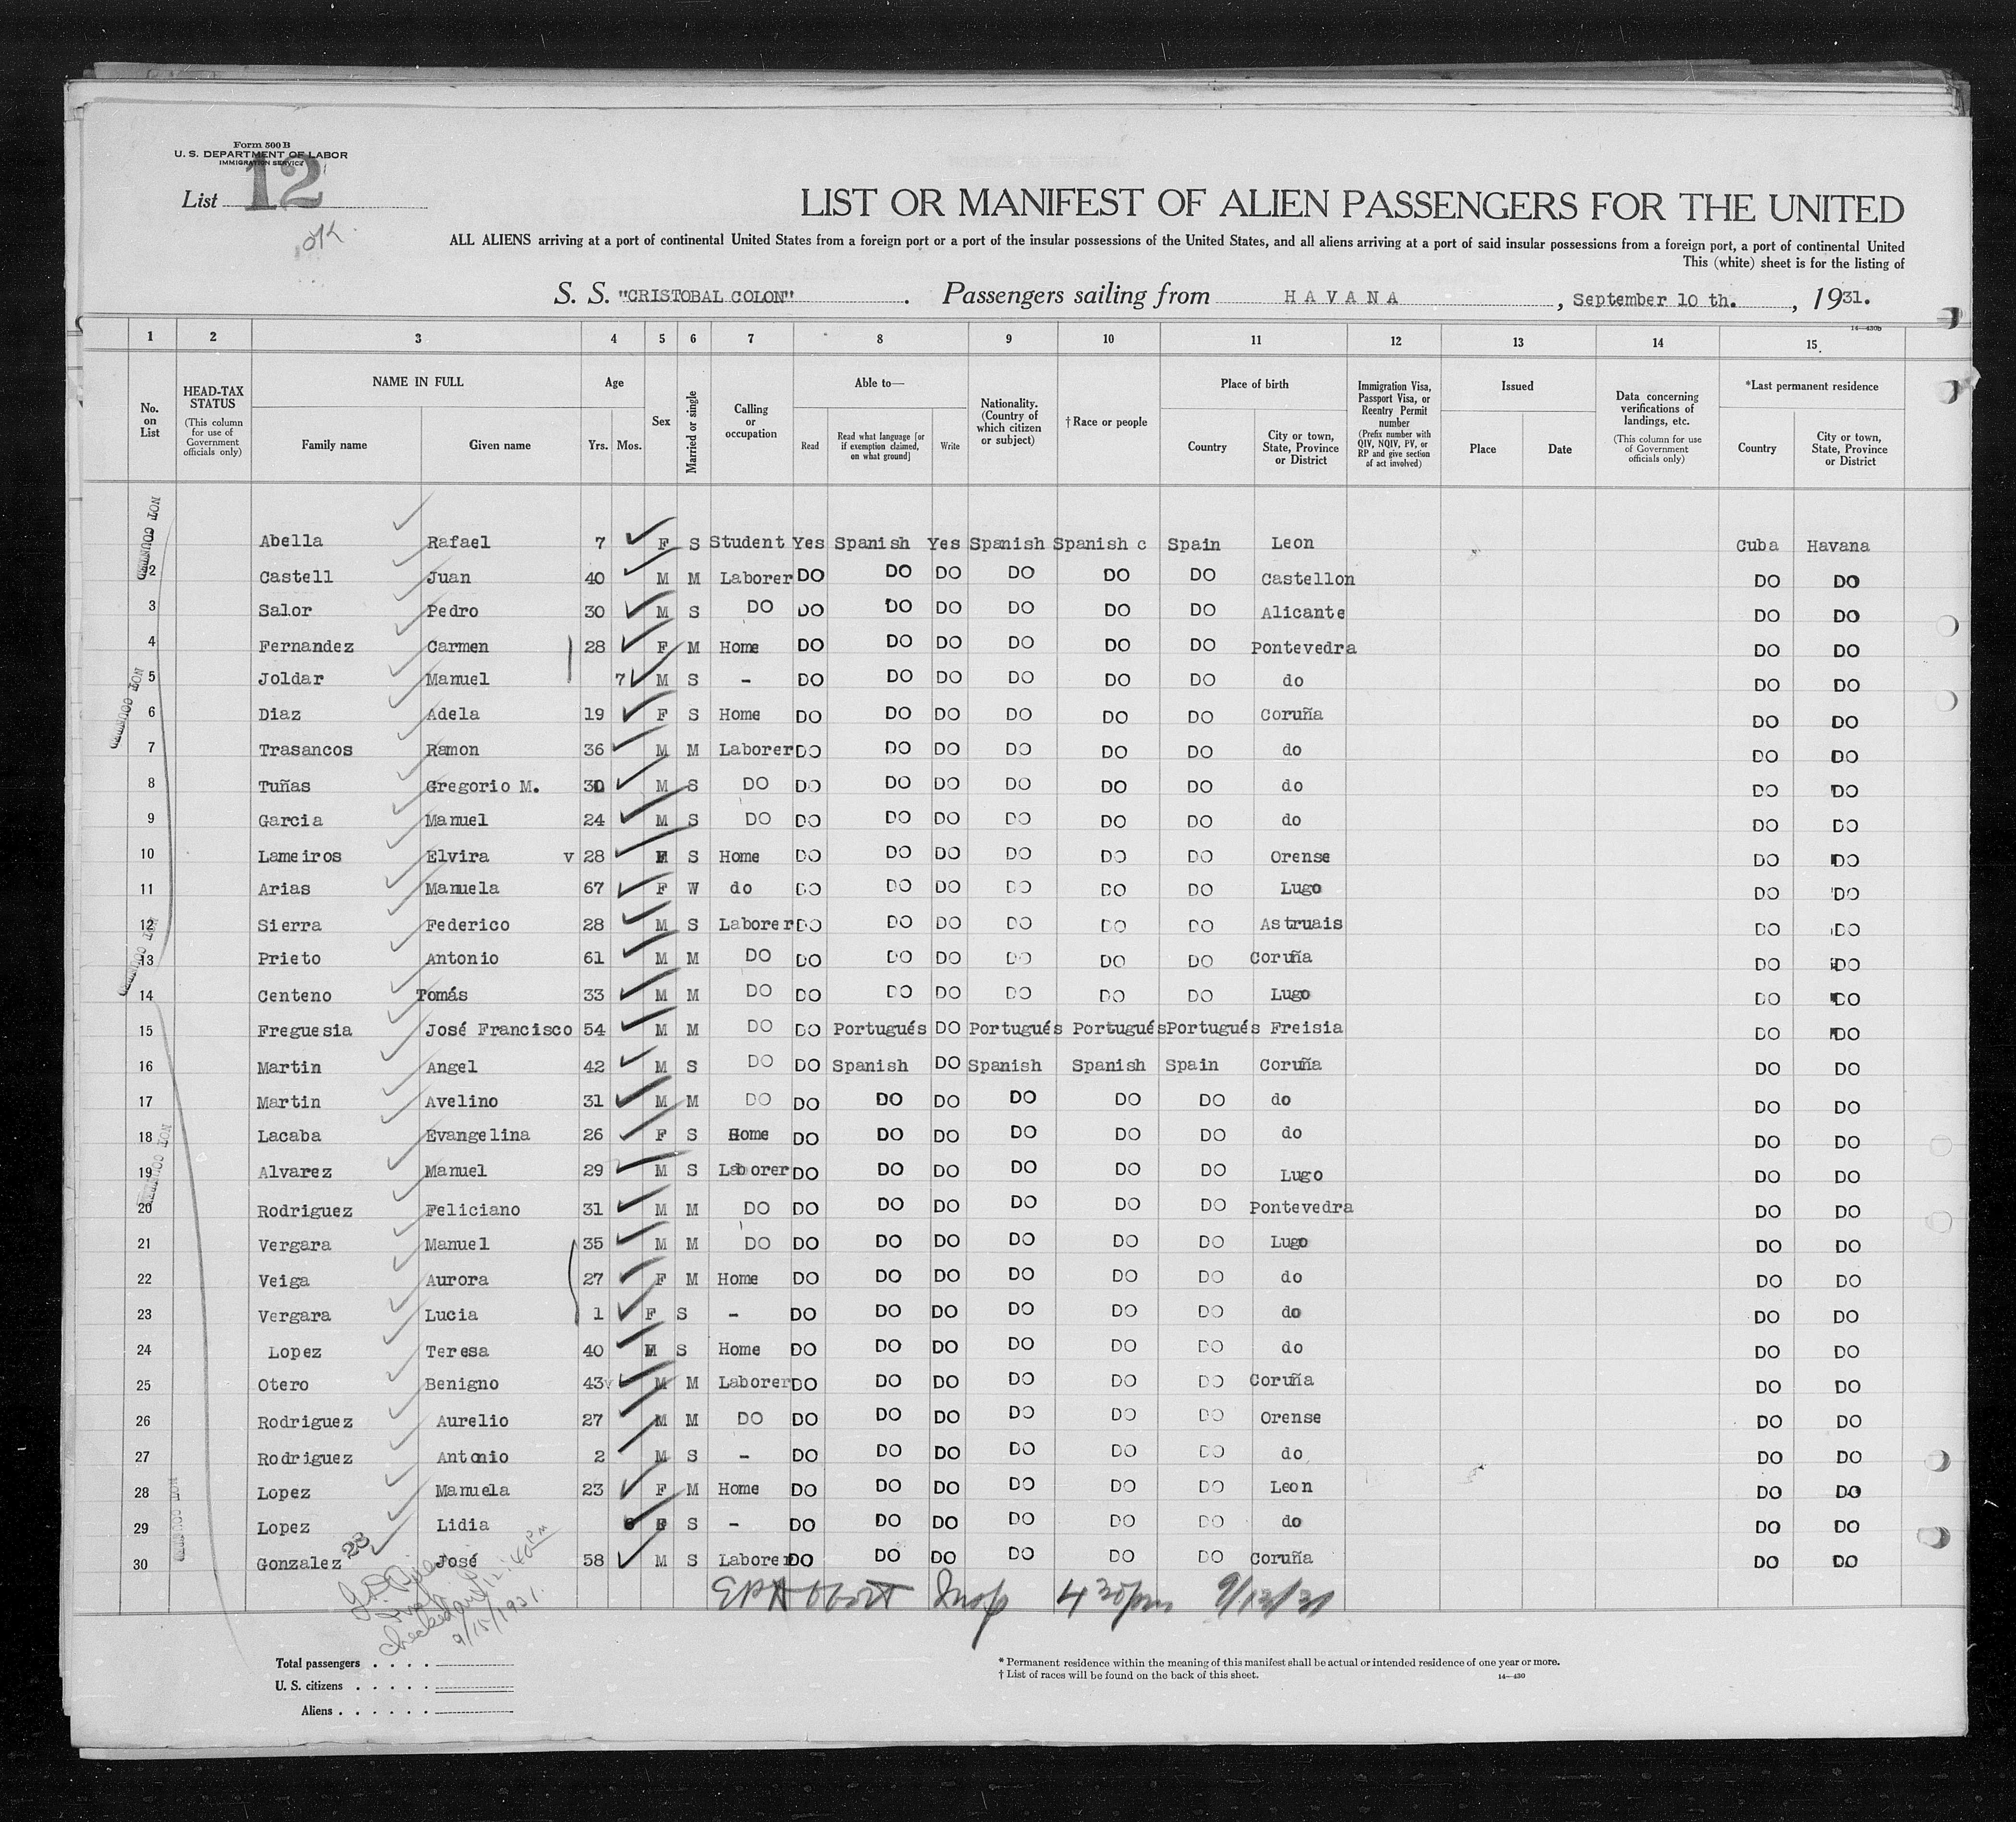 Form 500 B
U. S. DEPARTMENT OF LABOR
IMMIGRATION SERVICE
List 12
OK
LIST OR MANIFEST OF ALIEN PASSENGERS FOR THE UNITED
ALL ALIENS arriving at a port of continental United States from a foreign port or a port of the insular possessions of the United States, and all aliens arriving at a port of said insular possessions from a foreign port, a port of continental United
This (white) sheet is for the listing of
S. S. "CRISTOBAL COLON" . Passengers sailing from HAVANA , September 10 th. , 1931.
14—430b
1 2 3 4 5 6 7 8 9 10 11 12 13 14 15
No. on List
HEAD-TAX STATUS (This column for use of Government officials only)
NAME IN FULL
Family name Given name
Age
Yrs. Mos.
Sex
Married or single
Calling or occupation
Able to—
Read
Read what language [or if exemption claimed, on what ground]
Write
Nationality. (Country of which citizen or subject)
† Race or people
Place of birth
Country
City or town, State, Province or District
Immigration Visa, Passport Visa, or Reentry Permit number (Prefix number with QIV, NQIV, PV, or RP and give section of act involved)
Issued
Place Date
Data concerning verifications of landings, etc. (This column for use of Government officials only)
*Last permanent residence
Country
City or town, State, Province or District
NOT COUNTED
Abella Rafael 7 F S Student Yes Spanish Yes Spanish Spanish c Spain Leon Cuba Havana
2 Castell Juan 40 M M Laborer DO DO DO DO DO DO Castellon DO DO
3 Salor Pedro 30 M S DO DO DO DO DO DO DO Alicante DO DO
4 Fernandez Carmen 28 F M Home DO DO DO DO DO DO Pontevedra DO DO
5 Joldar Manuel 7 M S - DO DO DO DO DO DO do DO DO
NOT COUNTED
6 Diaz Adela 19 F S Home DO DO DO DO DO DO Coruña DO DO
7 Trasancos Ramon 36 M M Laborer DO DO DO DO DO DO do DO DO
8 Tuñas Gregorio M. 30 M S DO DO DO DO DO DO DO do DO DO
9 Garcia Manuel 24 M S DO DO DO DO DO DO DO do DO DO
10 Lameiros Elvira v 28 F S Home DO DO DO DO DO DO Orense DO DO
11 Arias Manuela 67 F W do DO DO DO DO DO DO Lugo DO DO
12 Sierra Federico 28 M S Laborer DO DO DO DO DO DO Astruais DO DO
NOT COUNTED
13 Prieto Antonio 61 M M DO DO DO DO DO DO DO Coruña DO DO
14 Centeno Tomás 33 M M DO DO DO DO DO DO DO Lugo DO DO
15 Freguesia José Francisco 54 M M DO DO Portugués DO Portugués Portugués Portugués Freisia DO DO
16 Martin Angel 42 M S DO DO Spanish DO Spanish Spanish Spain Coruña DO DO
17 Martin Avelino 31 M M DO DO DO DO DO DO DO do DO DO
18 Lacaba Evangelina 26 F S Home DO DO DO DO DO DO do DO DO
NOT COUNTED
19 Alvarez Manuel 29 M S Laborer DO DO DO DO DO DO Lugo DO DO
20 Rodriguez Feliciano 31 M M DO DO DO DO DO DO DO Pontevedra DO DO
21 Vergara Manuel 35 M M DO DO DO DO DO DO DO Lugo DO DO
22 Veiga Aurora 27 F M Home DO DO DO DO DO DO do DO DO
23 Vergara Lucia 1 F S - DO DO DO DO DO DO do DO DO
24 Lopez Teresa 40 S Home DO DO DO DO DO DO do DO DO
25 Otero Benigno 43 M M Laborer DO DO DO DO DO DO Coruña DO DO
26 Rodriguez Aurelio 27 M M DO DO DO DO DO DO DO Orense DO DO
27 Rodriguez Antonio 2 M S - DO DO DO DO DO DO do DO DO
28 Lopez Manuela 23 F M Home DO DO DO DO DO DO Leon DO DO
NOT COUNTED
29 Lopez Lidia 6 F S - DO DO DO DO DO DO do DO DO
30 Gonzalez José 58 M S Laborer DO DO DO DO DO DO Coruña DO DO
23
Insp 4 30pm 9/13/31
Insp.
checked 12:40 Pm
9/15/1931.
Total passengers
U. S. citizens
Aliens
* Permanent residence within the meaning of this manifest shall be actual or intended residence of one year or more.
† List of races will be found on the back of this sheet.
14—430